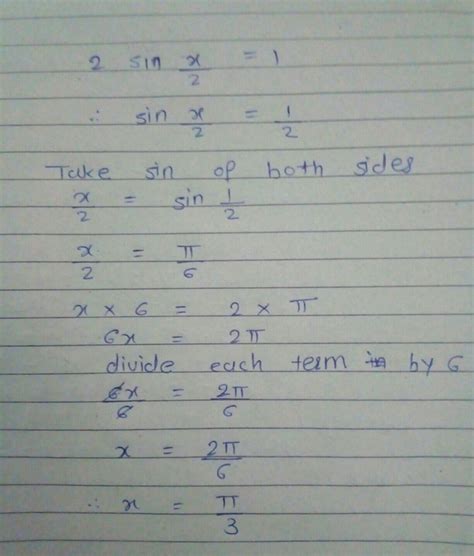 2 sin x/2 = 1
∴ sin x/2 = 1/2
Take sin of both sides
x/2 = sin 1/2
x/2 = π/6
x × 6 = 2 × π
6x = 2π
divide each term by 6
6x/6 = 2π/6
x = 2π/6
∴ x = π/3